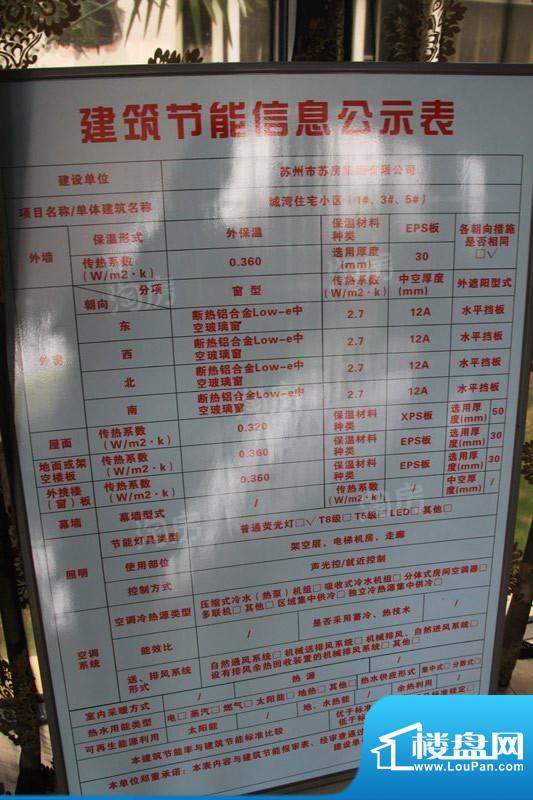 建筑节能信息公示表
建设单位 苏州市苏房集团有限公司
项目名称/单体建筑名称 城湾住宅小区(1#、3#、5#)
外墙 保温形式 外保温 保温材料种类 EPS板 各朝向措施是否相同
传热系数(W/m2·k) 0.360 选用厚度(mm) 30 □√
外窗 朝向 分项 窗型 传热系数(W/m2·k) 中空厚度(mm) 外遮阳型式
东 断热铝合金Low-e中空玻璃窗 2.7 12A 水平挡板
西 断热铝合金Low-e中空玻璃窗 2.7 12A 水平挡板
北 断热铝合金Low-e中空玻璃窗 2.7 12A 水平挡板
南 断热铝合金Low-e中空玻璃窗 2.7 12A 水平挡板
屋面 传热系数(W/m2·k) 0.320 保温材料种类 XPS板 选用厚度(mm) 50
地面或架空楼板 传热系数(W/m2·k) 0.360 保温材料种类 EPS板 选用厚度(mm) 30
外挑楼(窗)板 传热系数(W/m2·k) 0.360 保温材料种类 EPS板 选用厚度(mm) 30
幕墙 幕墙型式 / 传热系数(W/m2·k) / 中空厚度(mm) /
照明 节能灯具类型 普通荧光灯□√ T8级□ T5级□ LED□ 其他□
使用部位 架空层,电梯机房,走廊
控制方式 声光控/就近控制
空调系统 空调冷热源类型 压缩式冷水(热泵)机组□ 吸收式冷水机组□ 分体式房间空调器□
多联机□ 其他□ 区域集中供冷□ 独立冷热源集中供冷□
能效比 / 是否采用蓄冷、热技术 /
送、排风系统形式 自然通风系统□ 机械送排风系统□ 机械排风、自然进风系统□
设有排风余热回收装置的机械排风系统□ 其他□
室内采暖方式 / 热源 / 热水供应形式 集中式□ 分散式□
热水用能类型 电□ 蒸汽□ 燃气□ 太阳能□ 地热□ 其他□ 余热利用 /
可再生能源利用 太阳能 / 地、水热能 /
本建筑节能率与建筑节能标准比较 优于标
低于标
本单位郑重承诺:本表内容与建筑节能报审表、经审查通过
建设单
楼盘网
www.LouPan.com